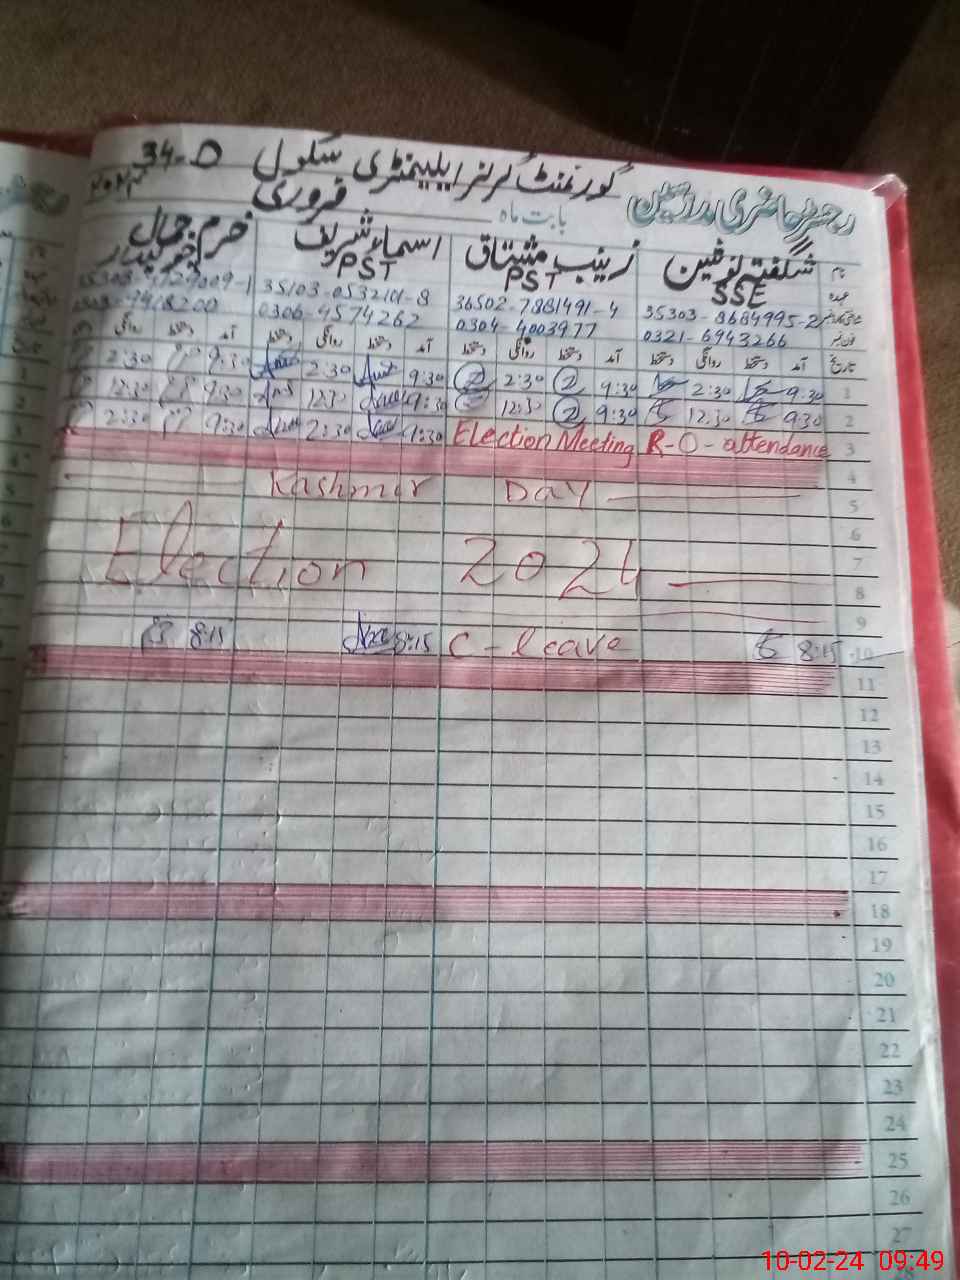 گورنمنٹ گرلز ایلیمنٹری سکول 34-D
رجسٹر حاضری مدرسین بابت ماہ فروری ۲۰۲۴
نام شگفتہ نوشین زینب مشتاق اسماء شریف خرم جمال
عہدہ SSE PST PST چوکیدار
35303-8684995-2 36502-7881491-4 35103-0532101-8
0321-6943266 0304-4003977 0306-4574262
تاریخ آمد دستخط روانگی دستخط آمد دستخط روانگی دستخط آمد دستخط روانگی دستخط آمد دستخط روانگی
1 9:30 2:30 9:30 2:30 9:30 2:30 9:30 2:30
2 9:30 12:30 9:30 12:30 9:30 12:30 9:30 12:30
3 R-O-attendance Election Meeting 9:30 2:30 9:30 2:30
4
5 Kashmir Day
6
7 Election 2024
8
9
10 8:15 C-leave 8:15 8:15
11
12
13
14
15
16
17
18
19
20
21
22
23
24
25
26
27
10-02-24 09:49